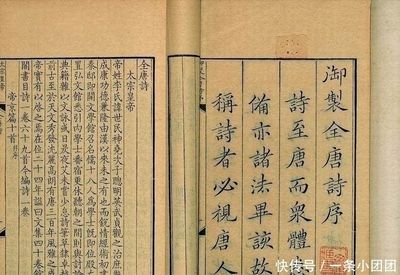 御製全唐詩序
詩至唐而衆體
備亦諸法畢該故
稱詩者必視唐人
全唐詩
太宗皇帝
帝姓李氏諱世民神堯次子聰明英武貞觀之治庶幾
成康功德兼隆由漢以來未之有也而銳情經術初建
秦邸即開文學館召名儒十八人爲學士既即位殿左
置弘文館悉引內學士番宿更休聽朝之間則與討論
典籍雜以文詠或日昃夜艾未嘗少怠詩筆草隸卓越
前古至於天文秀發沈麗高朗有唐三百年風雅之盛
帝實有以啓之焉在位二十四年諡曰文集四十卷館
閣書目詩一卷六十九首今編詩一卷
帝京篇十首
快传号/一条小团团